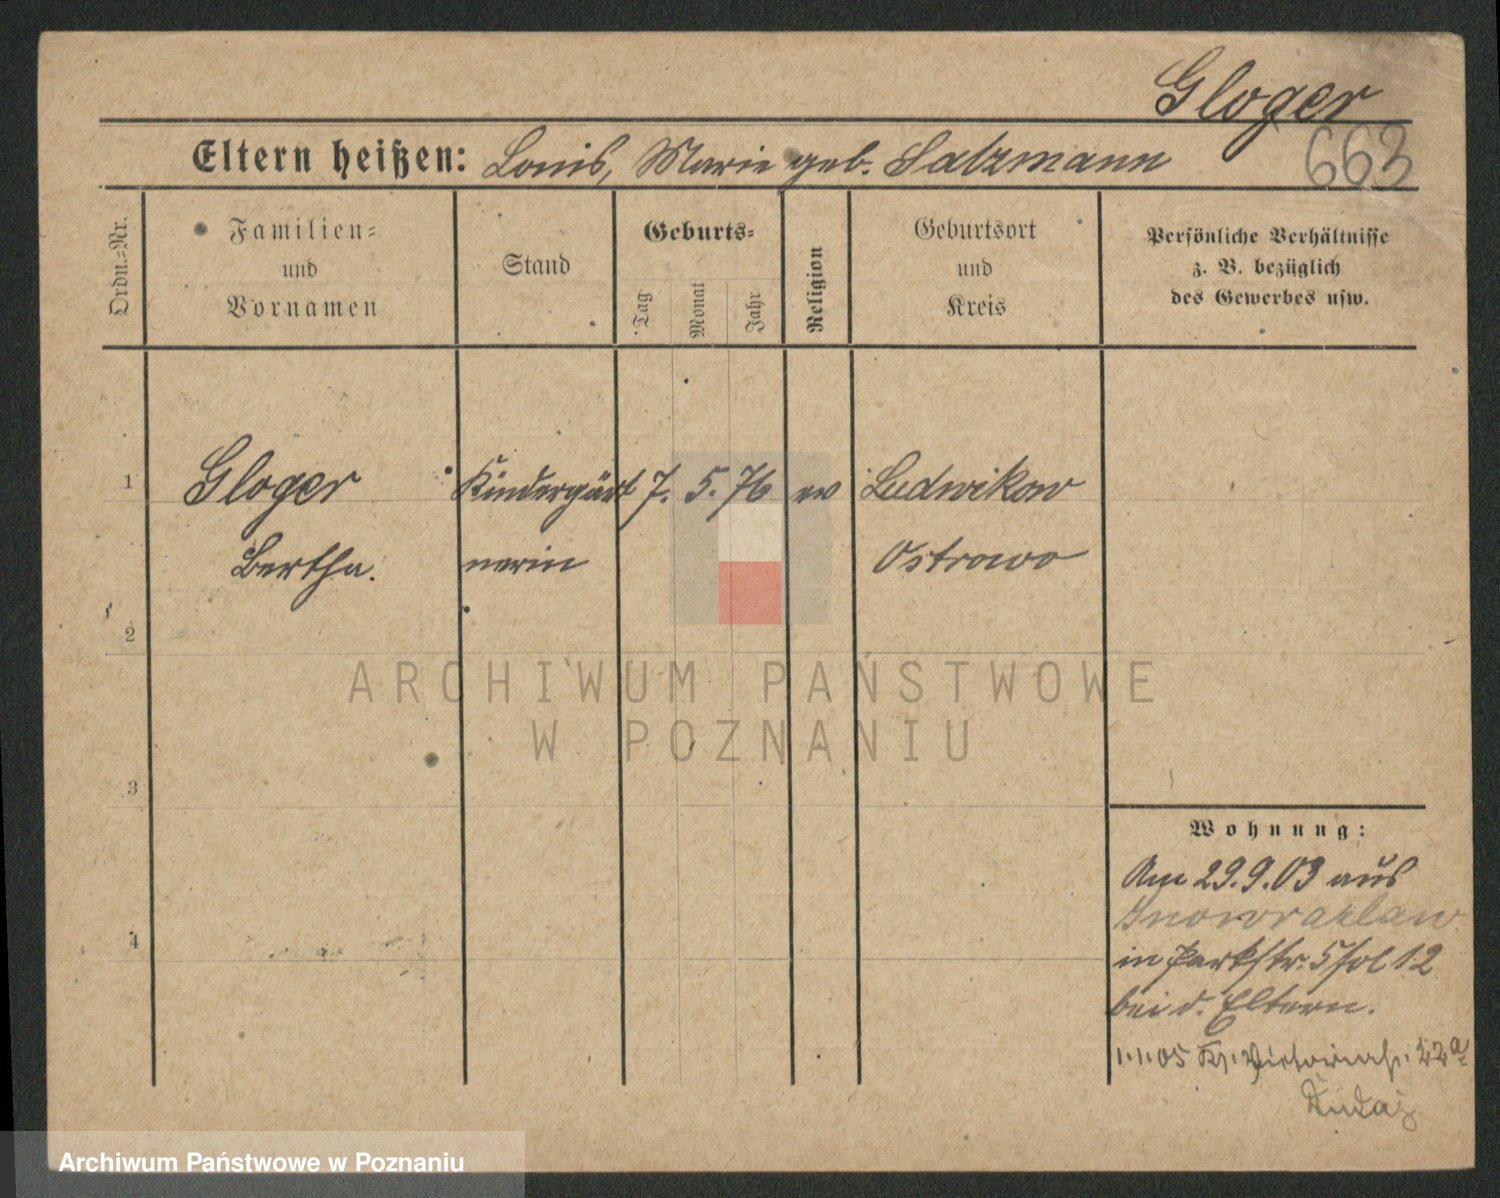 Gloger
663
Eltern heißen: Louis, Marie geb. Salzmann
Ordn.-Nr.
Familien-
und
Vornamen
Stand
Geburts-
Tag
Monat
Jahr
Religion
Geburtsort
und
Kreis
Persönliche Verhältnisse
z. B. bezüglich
des Gewerbes usw.
1 Gloger Kindergärt 7. 5. 76 ev Ludwikow
Bertha. nerin Ostrowo
2
3
4
ARCHIWUM PAŃSTWOWE
W POZNANIU
Wohnung:
Am 29.9.03 aus
Inowrazlaw
in Parkstr. 5 fol 12
bei d. Eltern.
1.1.05 Victoriastr. 22a
Archiwum Państwowe w Poznaniu